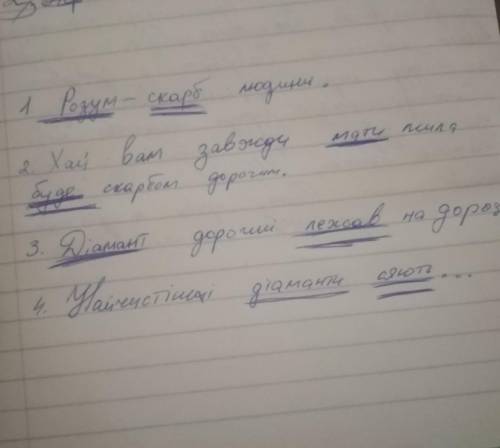 1 Розум – скарб людини.
2. Хай вам завжди мати мила
буде скарбом дорогим.
3. Діамант дорогий лежав на дороз
4. Найчистіші діаманти сяють...